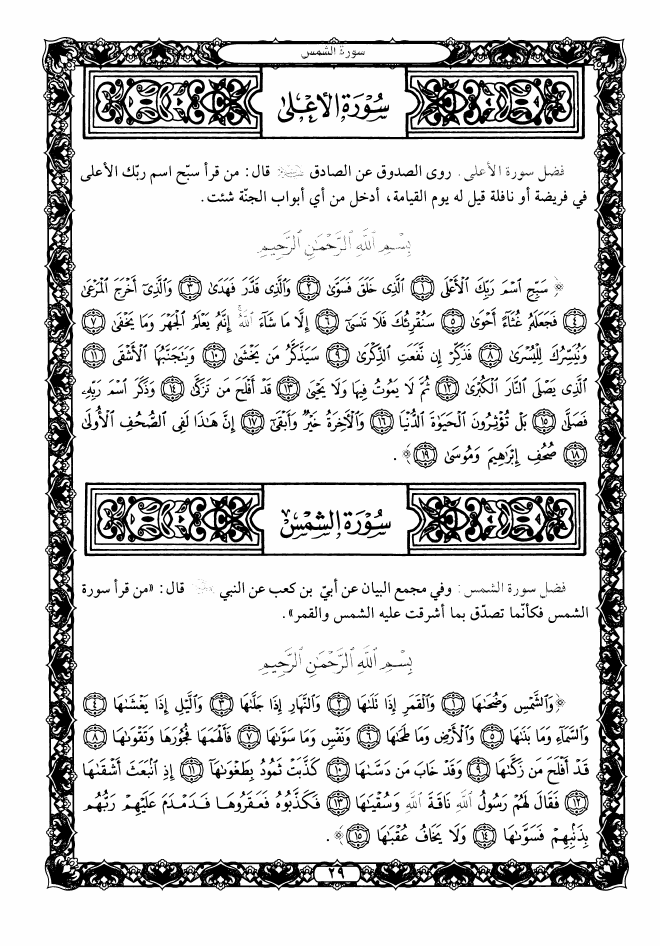 سورة الشمس
سُورَةِ الأَعْلىٰ
فضل سورة الأعلى. روى الصدوق عن الصادق قال: من قرأ سبّح اسم ربّك الأعلى
في فريضة أو نافلة قيل له يوم القيامة، أدخل من أي أبواب الجنّة شئت.
بِسْمِ اللَّهِ الرَّحْمَٰنِ الرَّحِيمِ
﴿ سَبِّحِ اسْمَ رَبِّكَ الْأَعْلَى ۝١ الَّذِي خَلَقَ فَسَوَّىٰ ۝٢ وَالَّذِي قَدَّرَ فَهَدَىٰ ۝٣ وَالَّذِي أَخْرَجَ الْمَرْعَىٰ
۝٤ فَجَعَلَهُ غُثَاءً أَحْوَىٰ ۝٥ سَنُقْرِئُكَ فَلَا تَنسَىٰ ۝٦ إِلَّا مَا شَاءَ اللَّهُ إِنَّهُ يَعْلَمُ الْجَهْرَ وَمَا يَخْفَىٰ ۝٧
وَنُيَسِّرُكَ لِلْيُسْرَىٰ ۝٨ فَذَكِّرْ إِن نَّفَعَتِ الذِّكْرَىٰ ۝٩ سَيَذَّكَّرُ مَن يَخْشَىٰ ۝١٠ وَيَتَجَنَّبُهَا الْأَشْقَى ۝١١
الَّذِي يَصْلَى النَّارَ الْكُبْرَىٰ ۝١٢ ثُمَّ لَا يَمُوتُ فِيهَا وَلَا يَحْيَىٰ ۝١٣ قَدْ أَفْلَحَ مَن تَزَكَّىٰ ۝١٤ وَذَكَرَ اسْمَ رَبِّهِ
فَصَلَّىٰ ۝١٥ بَلْ تُؤْثِرُونَ الْحَيَاةَ الدُّنْيَا ۝١٦ وَالْآخِرَةُ خَيْرٌ وَأَبْقَىٰ ۝١٧ إِنَّ هَٰذَا لَفِي الصُّحُفِ الْأُولَىٰ
۝١٨ صُحُفِ إِبْرَاهِيمَ وَمُوسَىٰ ۝١٩ ﴾ .
سُورَةِ الشَّمْسِ
فضل سورة الشمس: وفي مجمع البيان عن أبيّ بن كعب عن النبي قال: «من قرأ سورة
الشمس فكأنّما تصدّق بما أشرقت عليه الشمس والقمر».
بِسْمِ اللَّهِ الرَّحْمَٰنِ الرَّحِيمِ
﴿وَالشَّمْسِ وَضُحَاهَا ۝١ وَالْقَمَرِ إِذَا تَلَاهَا ۝٢ وَالنَّهَارِ إِذَا جَلَّاهَا ۝٣ وَاللَّيْلِ إِذَا يَغْشَاهَا ۝٤
وَالسَّمَاءِ وَمَا بَنَاهَا ۝٥ وَالْأَرْضِ وَمَا طَحَاهَا ۝٦ وَنَفْسٍ وَمَا سَوَّاهَا ۝٧ فَأَلْهَمَهَا فُجُورَهَا وَتَقْوَاهَا ۝٨
قَدْ أَفْلَحَ مَن زَكَّاهَا ۝٩ وَقَدْ خَابَ مَن دَسَّاهَا ۝١٠ كَذَّبَتْ ثَمُودُ بِطَغْوَاهَا ۝١١ إِذِ انبَعَثَ أَشْقَاهَا
۝١٢ فَقَالَ لَهُمْ رَسُولُ اللَّهِ نَاقَةَ اللَّهِ وَسُقْيَاهَا ۝١٣ فَكَذَّبُوهُ فَعَقَرُوهَا فَدَمْدَمَ عَلَيْهِمْ رَبُّهُم
بِذَنبِهِمْ فَسَوَّاهَا ۝١٤ وَلَا يَخَافُ عُقْبَاهَا ۝١٥ ﴾ .
٢٩